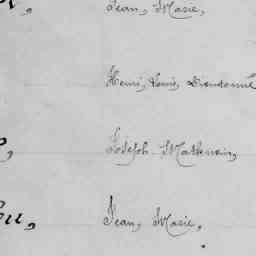 Jean, Marie,
Henri, Louis, Dieudonné
Joseph Mathurin,
Jean, Marie,